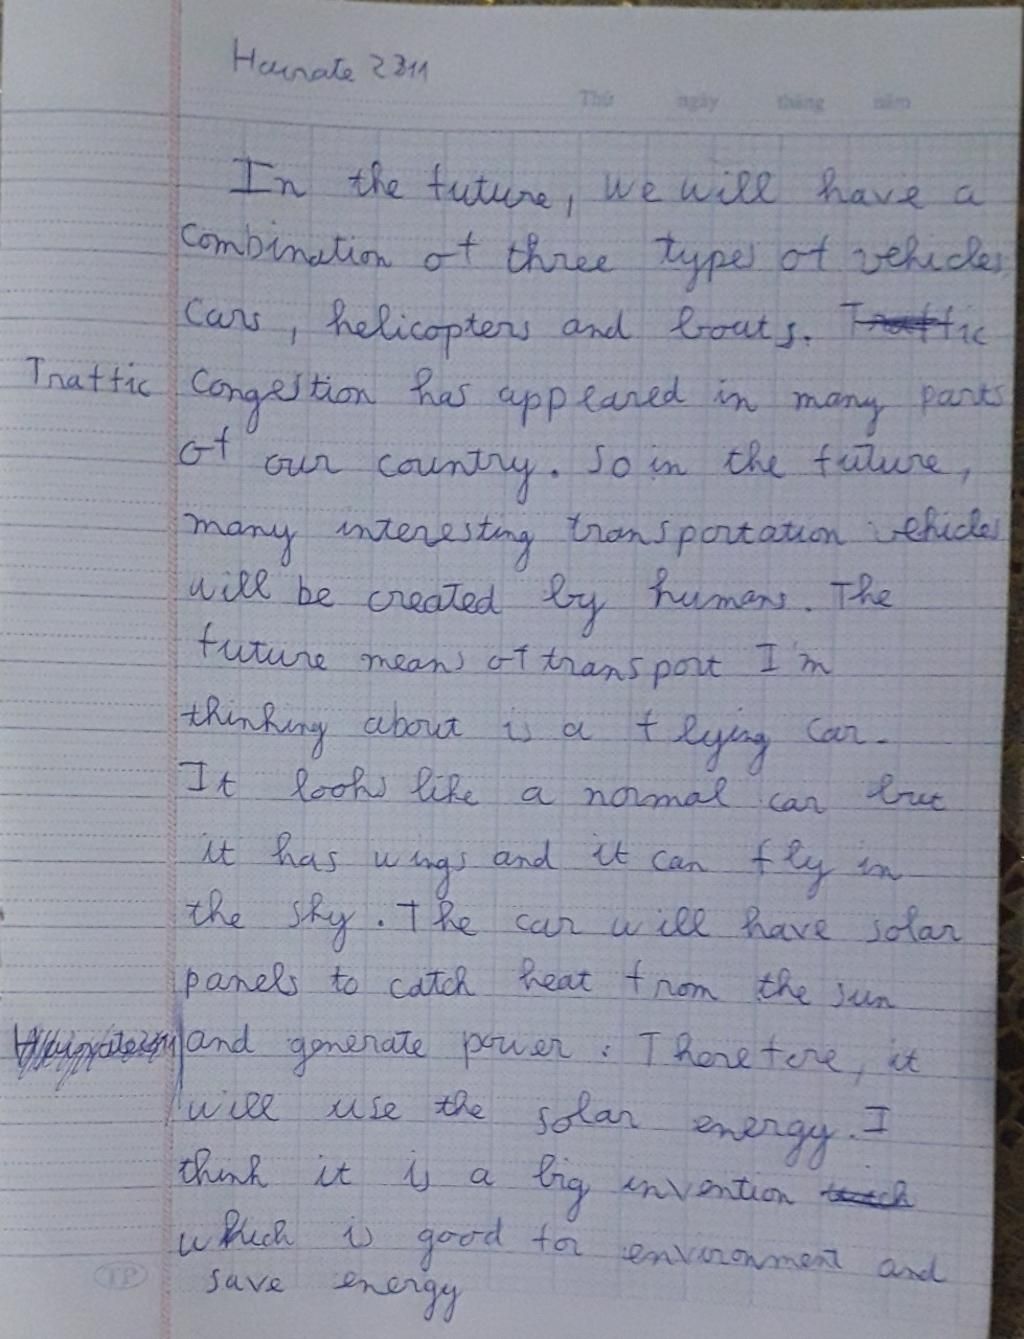 Hainate 2311
Thứ ngày tháng năm
In the future, we will have a
combination of three types of vehicles
cars, helicopters and boats.
Traffic congestion has appeared in many parts
of our country. So in the future,
many interesting transportation vehicles
will be created by humans. The
future means of transport I'm
thinking about is a flying car.
It looks like a normal car but
it has wings and it can fly in
the sky. The car will have solar
panels to catch heat from the sun
and generate power. Therefore, it
will use the solar energy. I
think it is a big invention
which is good for environment and
save energy
TP